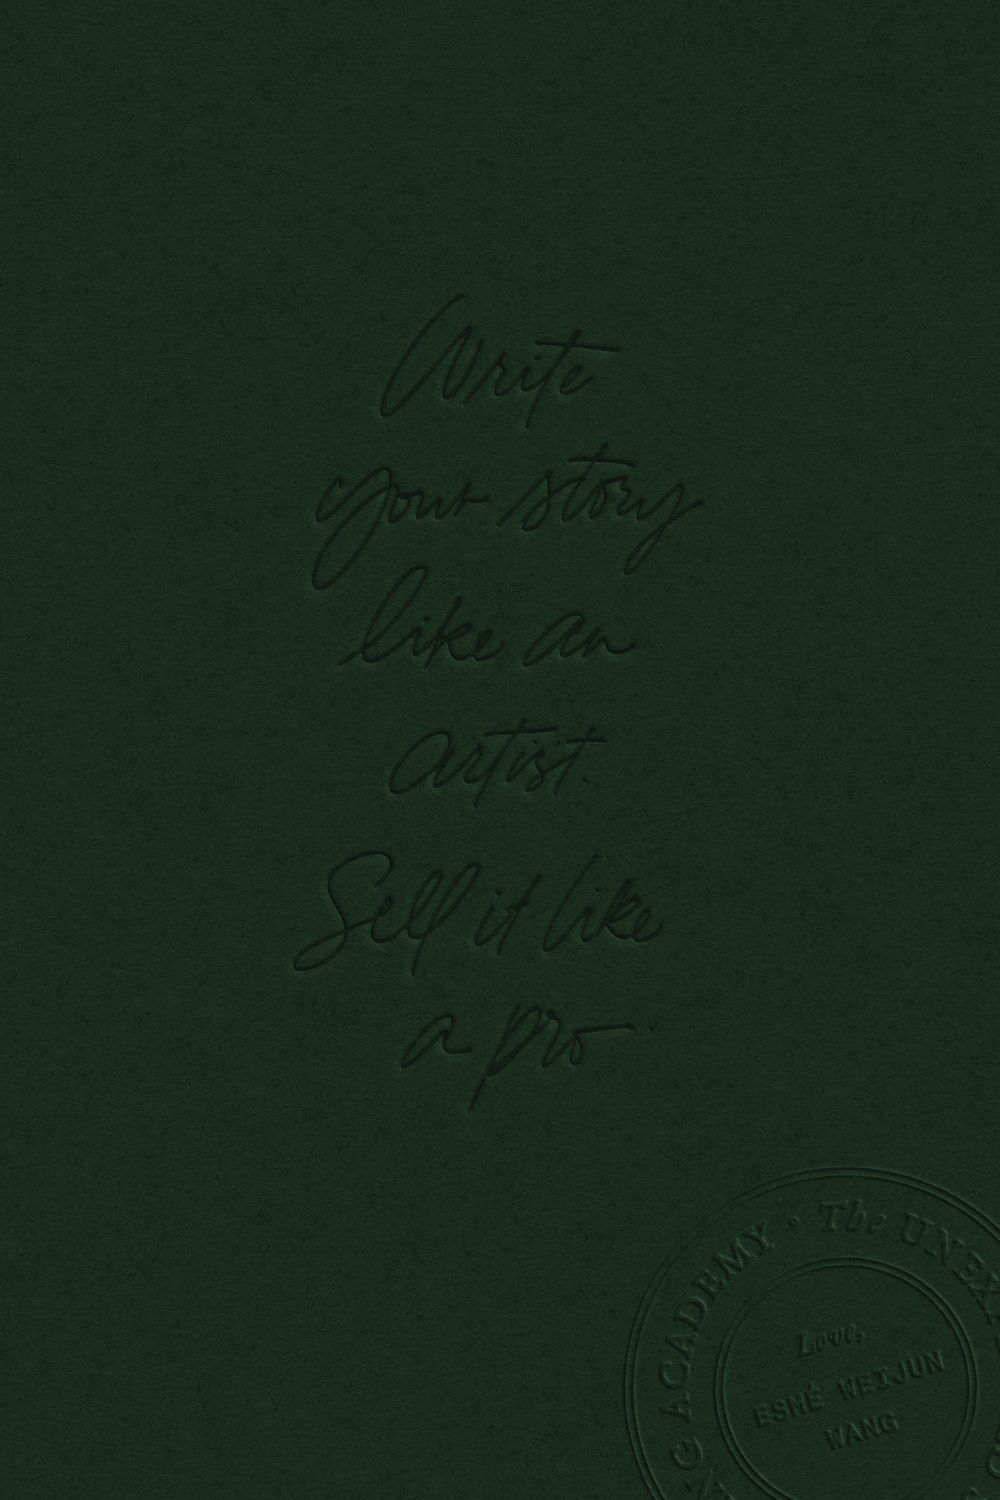 Write
your story
like an
artist.
Sell it like
a pro.
ACADEMY • The
Love,
ESMÉ WEIJUN
WANG